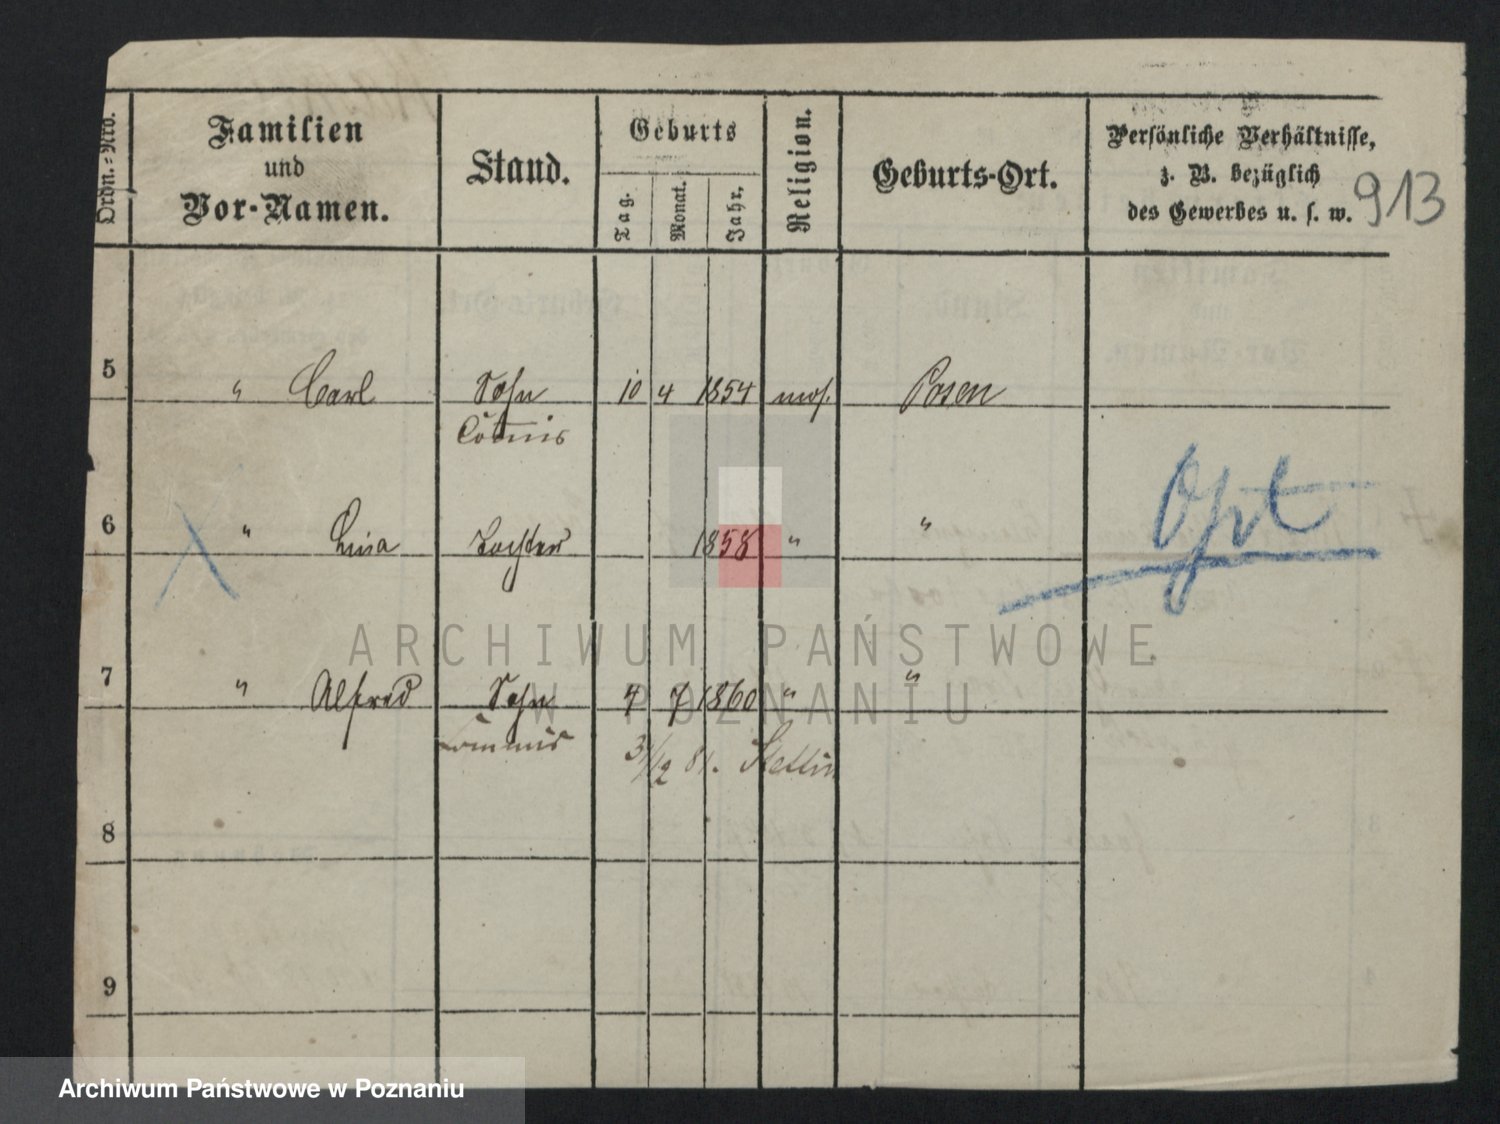 Ordn.-Nro.
Familien
und
Vor-Namen.
Stand.
Geburts
Tag.
Monat.
Jahr.
Religion.
Geburts-Ort.
Persönliche Verhältnisse,
z. B. bezüglich
des Gewerbes u. s. w.
913
5 " Carl Sohn 10 4 1854 mos. Posen
Com̅is
6 " Lina Tochter 1858 " "
7 " Alfred Sohn 4 7 1860 " "
Commis 31/12 81. Stettin
8
9
ARCHIWUM PAŃSTWOWE
W POZNANIU
Archiwum Państwowe w Poznaniu